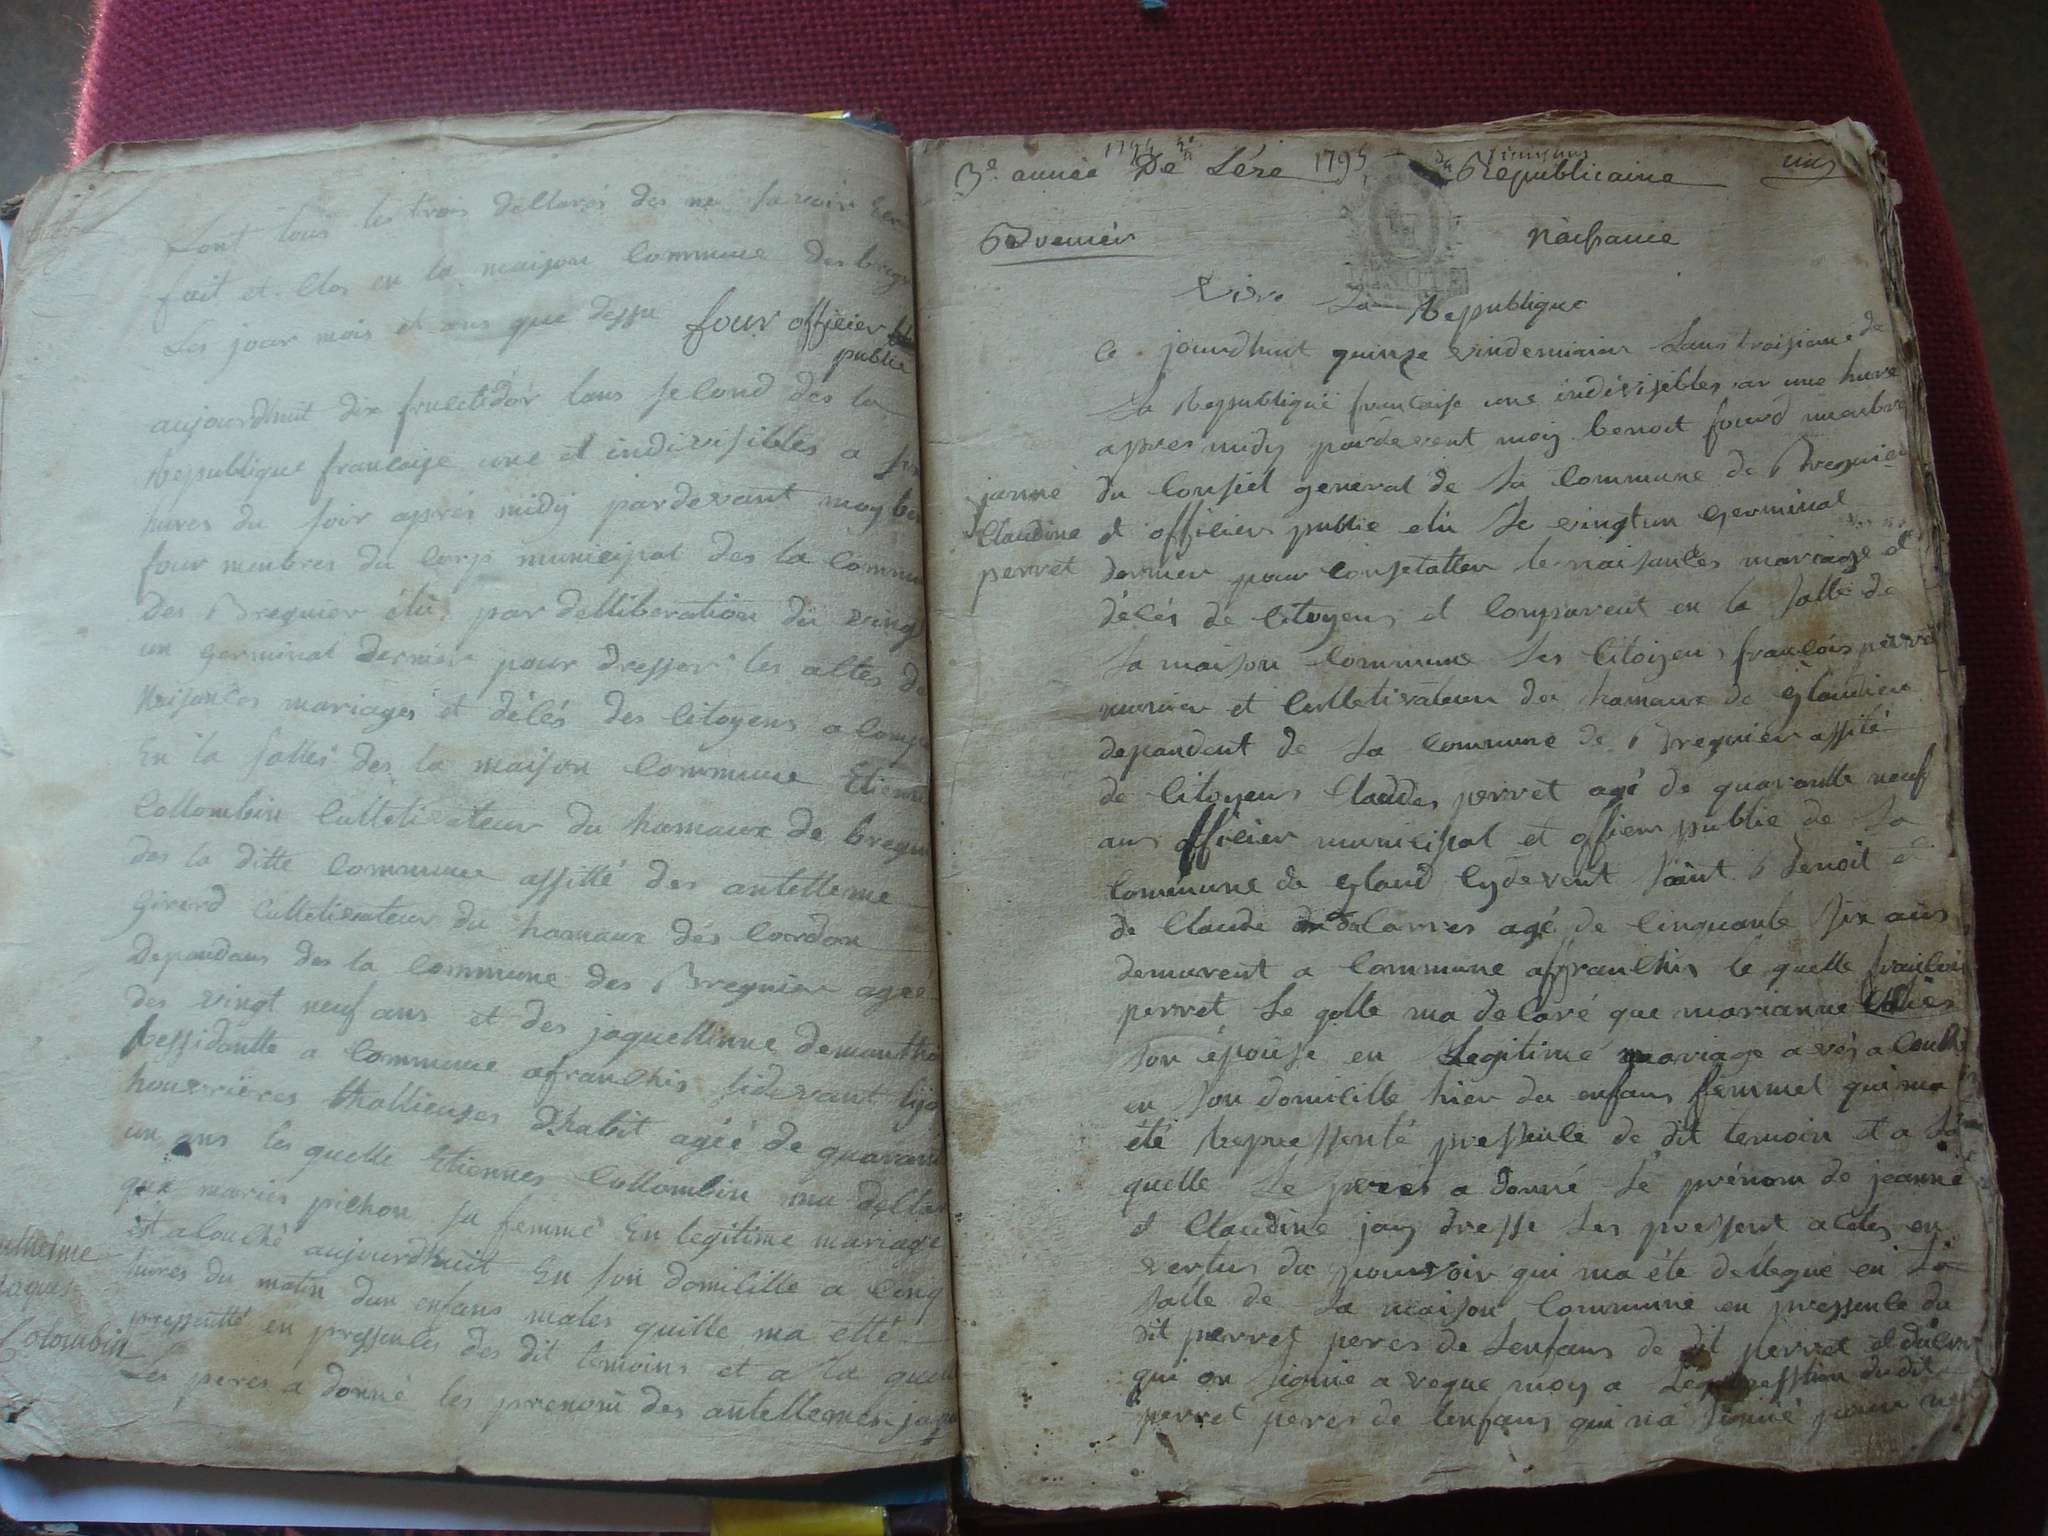 sont tous les trois dellarés des ne savoir
fait et clos en la maison commune des bregn
les jour mois et ans que dessu four officier
public
aujourdhuit dix fructidor lans second des la
Republique francaise une et indivisibles a
hures du soir aprés midy pardevant moy ben
four menbres du corps municipal des la commu
Des Bregnier élû par delliberation du vingt
un Germinal dernier pour dresser les actes de
Naisances mariages et décés des Citoyens a comp
En la salles des la maison commune Etienne
Collombin Culletivateur du hamaux de bregn
des la ditte commune assitté des antellme
Girerd Culletivateur du hamaux dés Cordon
Dependans des la commune des Bregnier agee
des vingt neuf ans et des jaquellinne demantho
Ressidantte a commune afranchis sidevant lyo
houvrières thallieuses Dhabit agéé de quarant
un ans les quelle Etiennes Collombin ma dellar
que maries pichon sa femme En legitime mariage
est acouché aujourdhuit En son domicille a cinq
hures du matin dun enfans males quille ma etté
pressentté en pressences des dit temoins et a la quel
Les peres a donné les prenom des antellemes jaq
nthelme
jaques
Colombin
3e. année De Lére Republicaine
1794 1795
Premier Naissance
Vive La Republique
ce jourdhuit quinze vindemiaire lans troisieme de
la Republique francaise une indivisibles a une hure
apres midy pardevent moy benoit fourd menbre
du Conseil general de la Commune de Bregnier
et officier public elû le vingtun Germinal
dernier pour Constatter le naisances mariage et
décés de Citoyens et Comparent en la salle de
la maison Commune les Citoyens francois perret
munier et Culletivateur du hamaux de Glandieu
dependent de la Commune de Bregnier assité
de Citoyens Claudes perret agé de quarantte neuf
ans officier municipal et officier public de la
Commune de Gland Cydevent saint Benoit et
de Claude agé de Cinquante six ans
demurent a Commune affranchis le quelle francois
perret le qelle ma declaré que marianne
son épouse en Legitime mariage a
en son domicille hier du enfans femmel qui ma
été Repressenté pressence de dit temoin et a la
quelle le peres a donné le prénom de jeanne
et Claudine jay dresse les pressent actes en
vertus du pouvoir qui ma été dellegué en la
salle de la maison Commune en pressence du
dit perret peres de lenfans de dit perret et
qui on sinné a veque moy a Lexpression du dit
perret peres de lenfans qui na sinné pour ne
janne
Claudine
perret